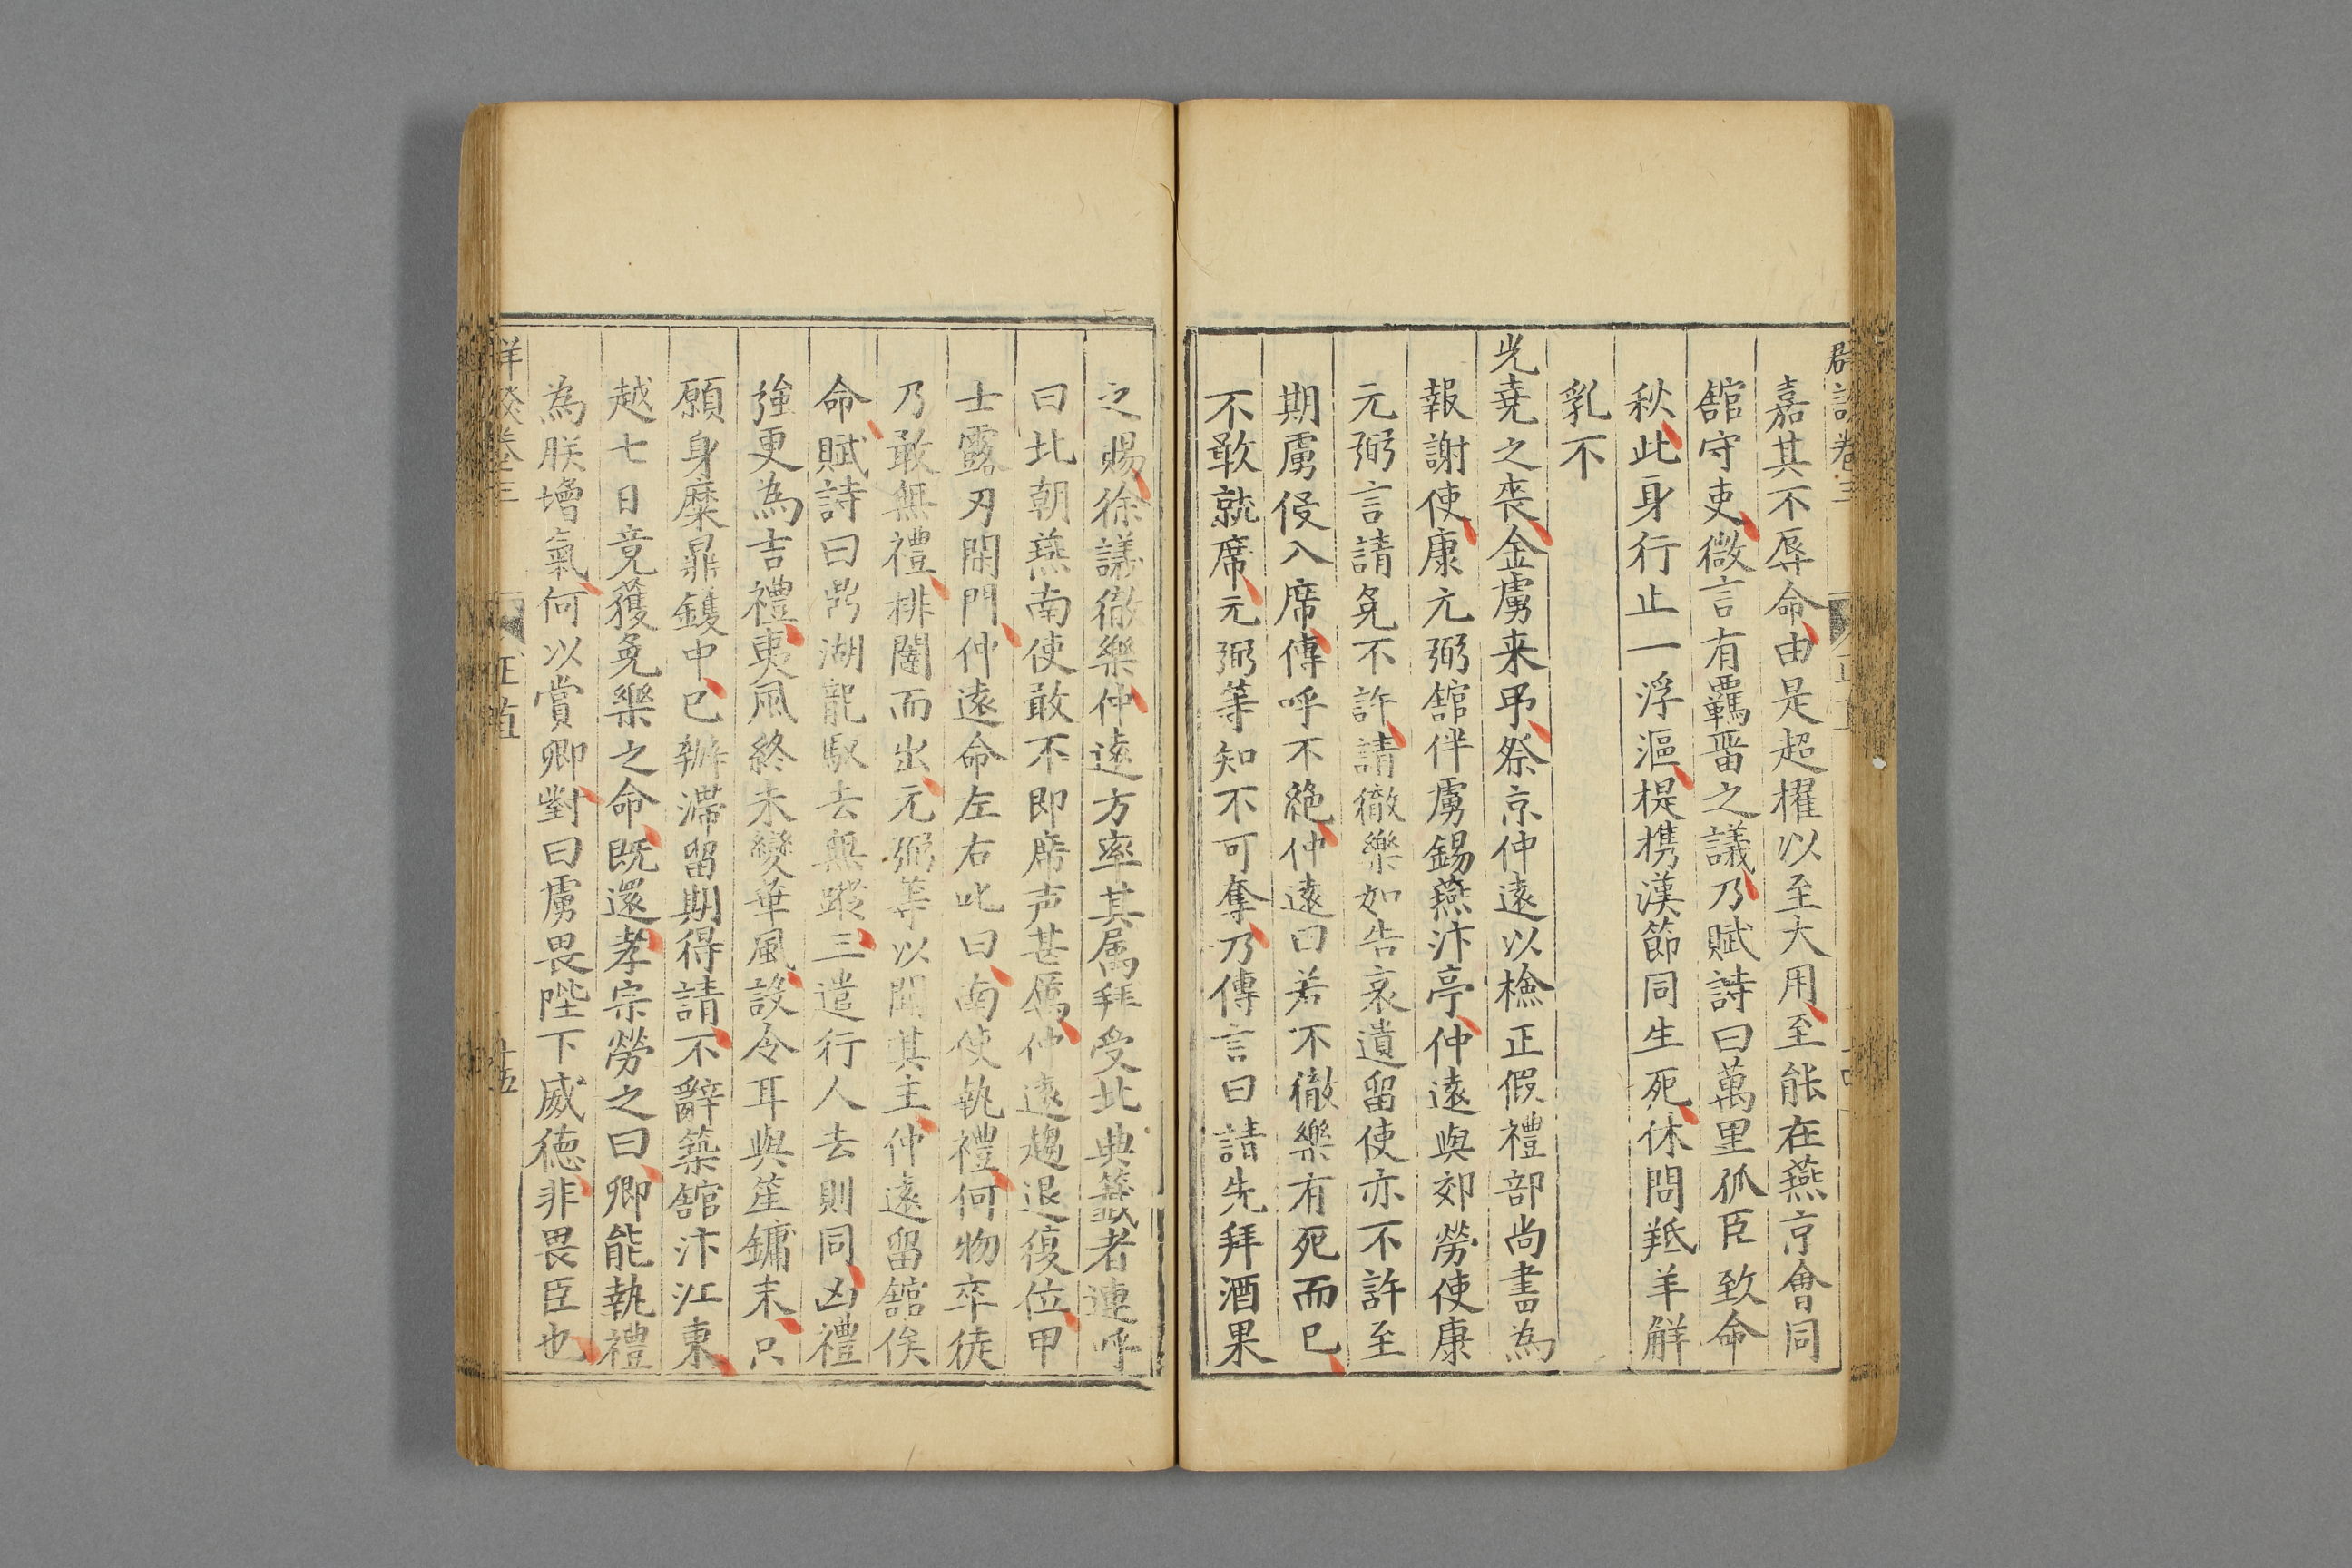 嘉其不辱命由是超擢以至大用至能在燕京會同
舘守吏微言有羈畱之議乃賦詩曰萬里孤臣致命
秋此身行止一浮漚提携漢節同生死休問羝羊觧
乳不
光堯之喪金虜来吊祭京仲遠以檢正假禮部尚書為
報謝使康元弼舘伴虜錫燕汴亭仲遠與郊勞使康
元弼言請免不許請徹樂如告哀遺留使亦不許至
期虜促入席傳呼不絶仲遠曰若不徹樂有死而已
不敢就席元弼等知不可奪乃傳言曰請先拜酒果
之賜徐議徹樂仲遠方率其属拜受北典籖者連呼
曰北朝燕南使敢不即席声甚厲仲遠趨退復位甲
士露刃閉門仲遠命左右叱曰南使執禮何物卒徒
乃敢無禮排闥而出元弼等以聞其主仲遠留舘俟
命賦詩曰鼎湖龍馭去無蹤三遣行人去則同凶禮
強更為吉禮夷風終未變華風設令耳與笙鏞末只
願身糜鼎鑊中已辦滯留期得請不辭築舘汴江東
越七日竟獲免樂之命既還孝宗勞之曰卿能執禮
為朕增氣何以賞卿對曰虜畏陛下威德非畏臣也